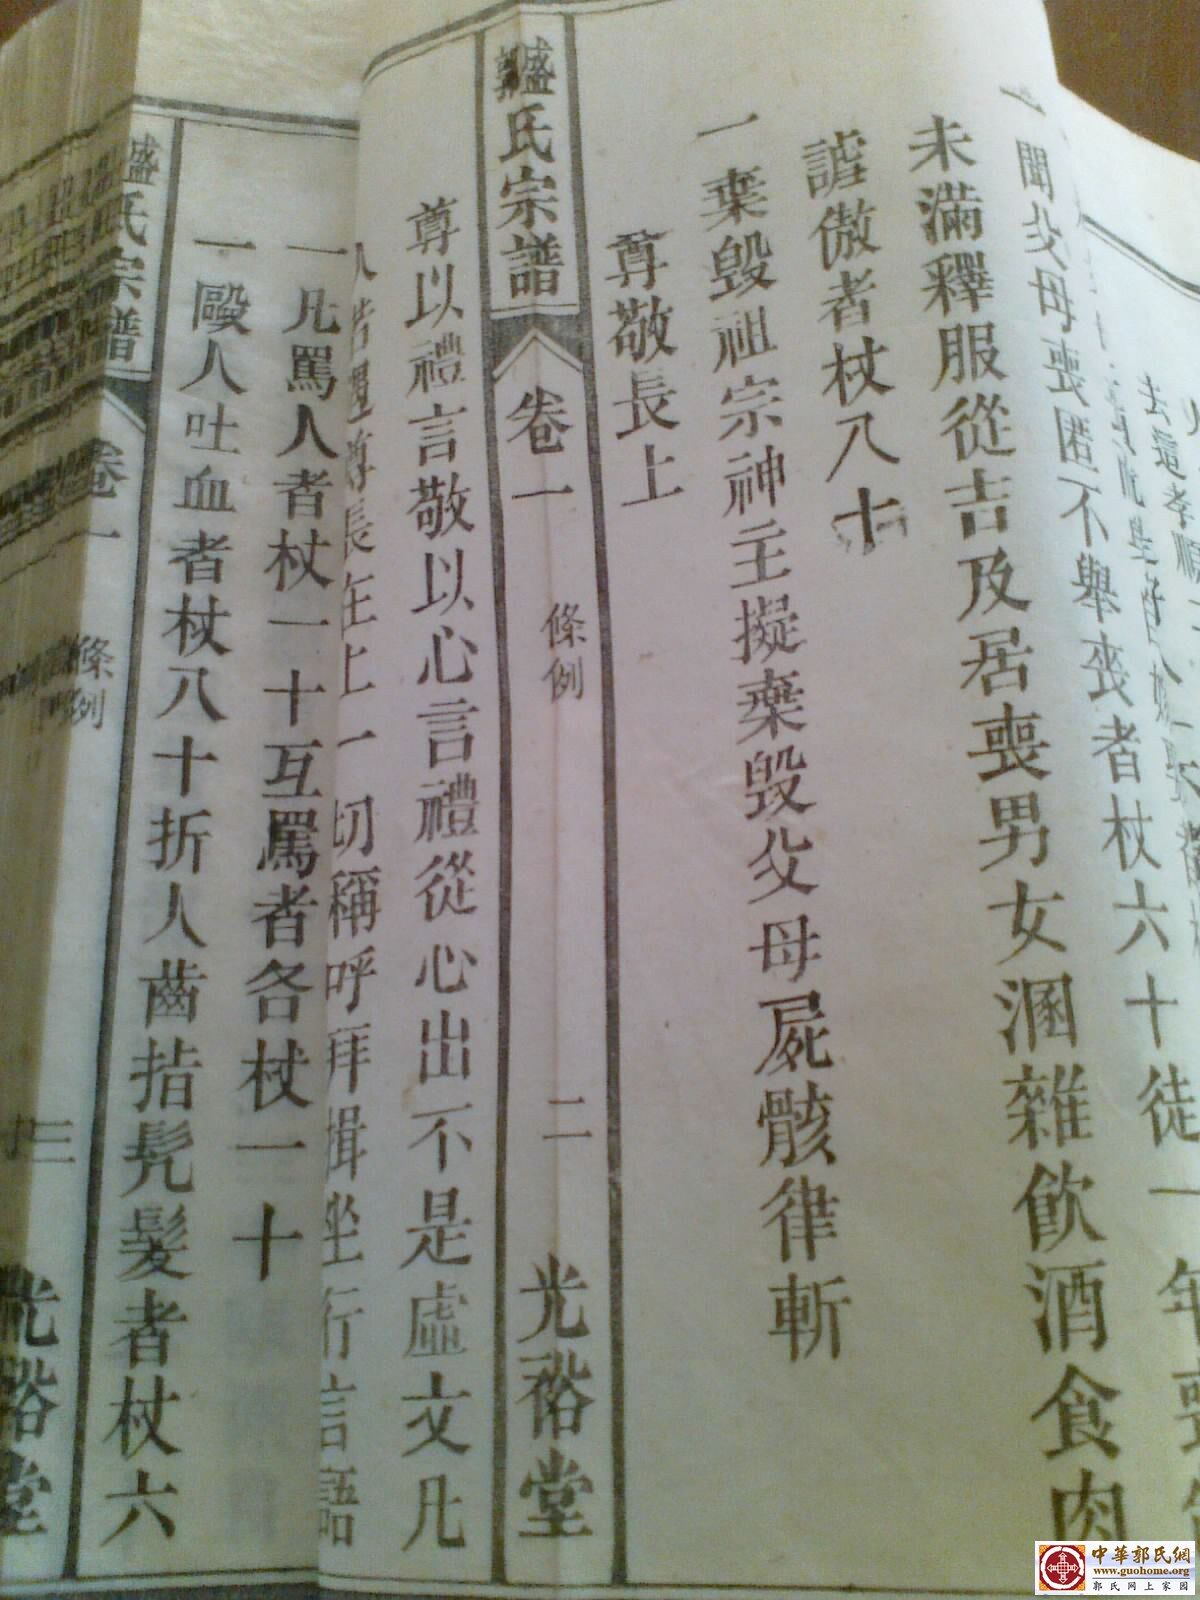 去這孝順
一聞父母喪匿不舉喪者杖六十徒一年喪
未滿釋服從吉及居喪男女溷雜飲酒食肉
謔傲者杖八十
一棄毀祖宗神主擬棄毀父母屍骸律斬
尊敬長上
氏宗譜 卷一 條例 二 光裕堂
尊以禮言敬以心言禮從心出不是虛文凡
尊長在上一切稱呼拜揖坐行言語
一凡罵人者杖一十互罵者各杖一十
一毆人吐血者杖八十折人齒指髡髮者杖六
氏宗譜 卷一 條例 三 光裕堂
中華郭氏網
www.guohome.org
郭氏网上家园